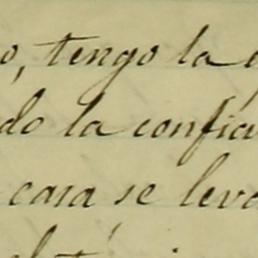 o, tengo la
do la confia
casa se leva